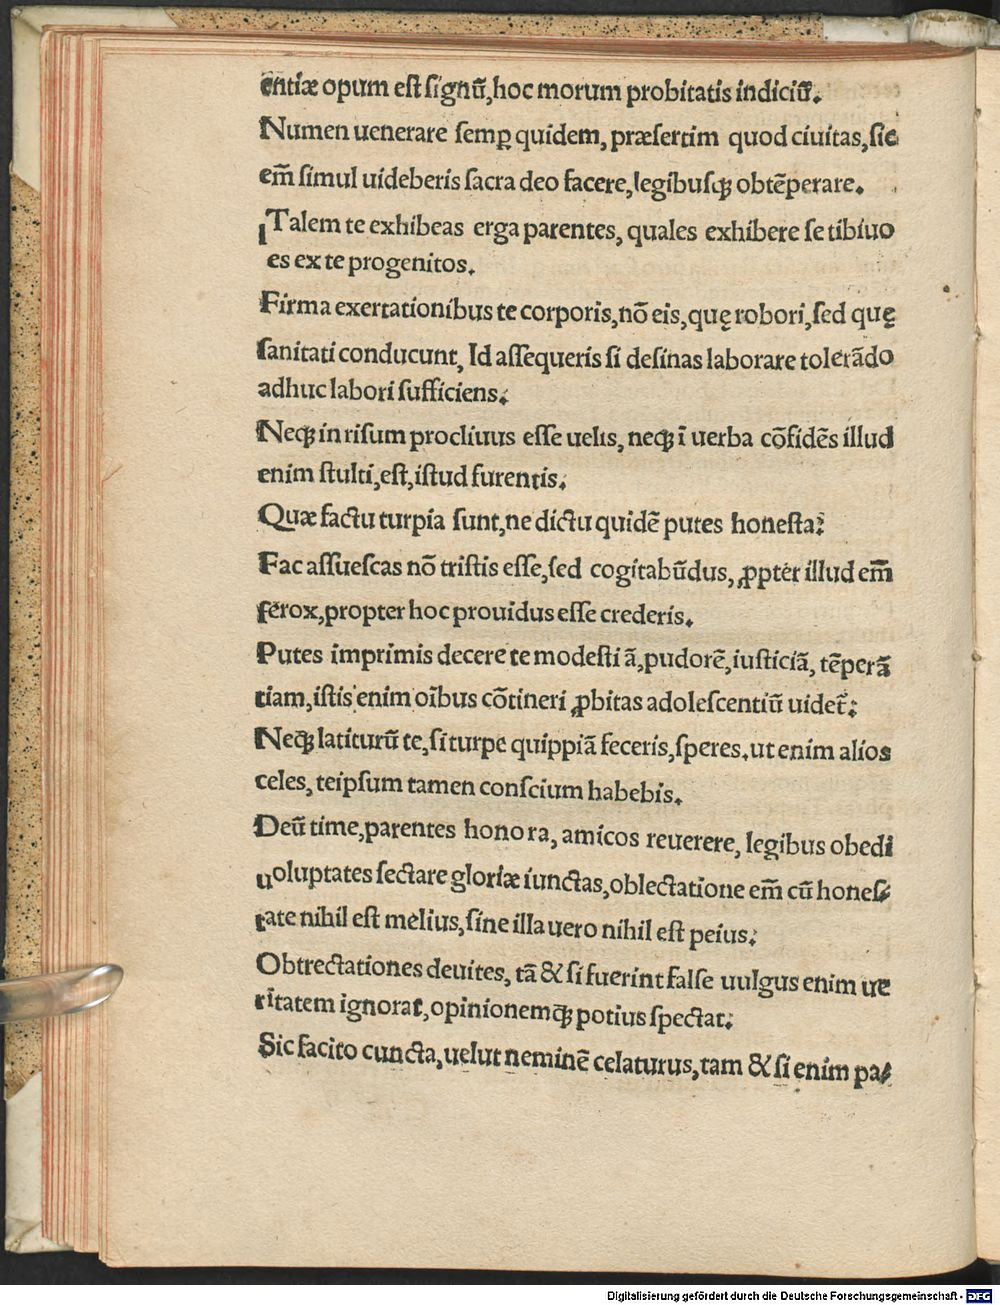 entiæ opum est signũ, hoc morum probitatis indiciũ.
Numen uenerare semꝑ quidem, præsertim quod ciuitas, sic
em̃ simul uideberis sacra deo facere, legibusqꝫ obtẽperare.
Talem te exhibeas erga parentes, quales exhibere se tibi uo
es ex te progenitos.
Firma exertationibus te corporis, nõ eis, quę robori, sed quę
sanitati conducunt, Id assequeris si desinas laborare tolerãdo
adhuc labori sufficiens.
Neqꝫ in risum procliuus esse uelis, neqꝫ ĩ uerba cõfidẽs illud
enim stulti, est, istud furentis.
Quæ factu turpia sunt, ne dictu quidẽ putes honesta.
Fac assuescas nõ tristis esse, sed cogitabũdus, ꝓpter illud em̃
ferox, propter hoc prouidus esse crederis.
Putes imprimis decere te modestiã, pudorẽ, iusticiã, tẽperã
tiam, istis enim oĩbus cõtineri ꝓbitas adolescentiũ uidet̃.
Neqꝫ latiturũ te, si turpe quippiã feceris, speres. ut enim alios
celes, teipsum tamen conscium habebis.
Deũ time, parentes honora, amicos reuerere, legibus obedi
uoluptates sectare gloriæ iunctas, oblectatione em̃ cũ hones-
tate nihil est melius, sine illa uero nihil est peius.
Obtrectationes deuites, tã & si fuerint false uulgus enim ue
ritatem ignorat, opinionemqꝫ potius spectat.
Sic facito cuncta, uelut neminẽ celaturus, tam & si enim pa-
Digitalisierung gefördert durch die Deutsche Forschungsgemeinschaft - DFG